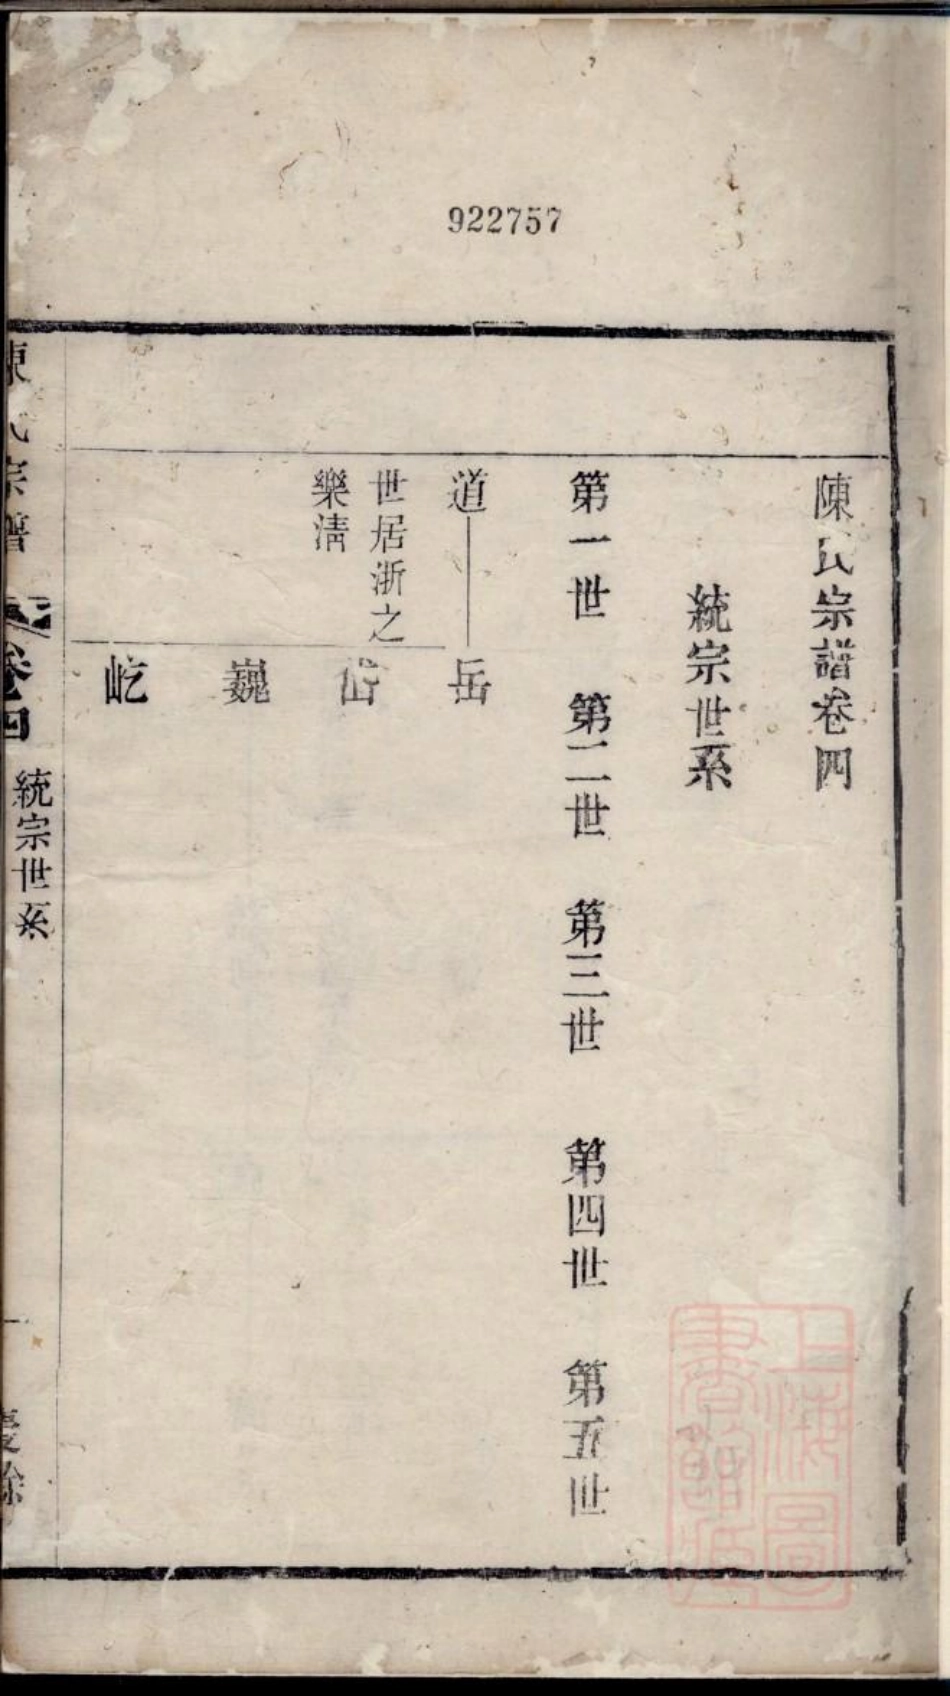 922757
陳氏宗譜卷四
統宗世系
第一世 第二世 第三世 第四世 第五世
道 岳
世居浙之
樂清
岱
巍
屹
陳氏宗譜 卷四 統宗世系 一 慶餘
上海圖
書館藏